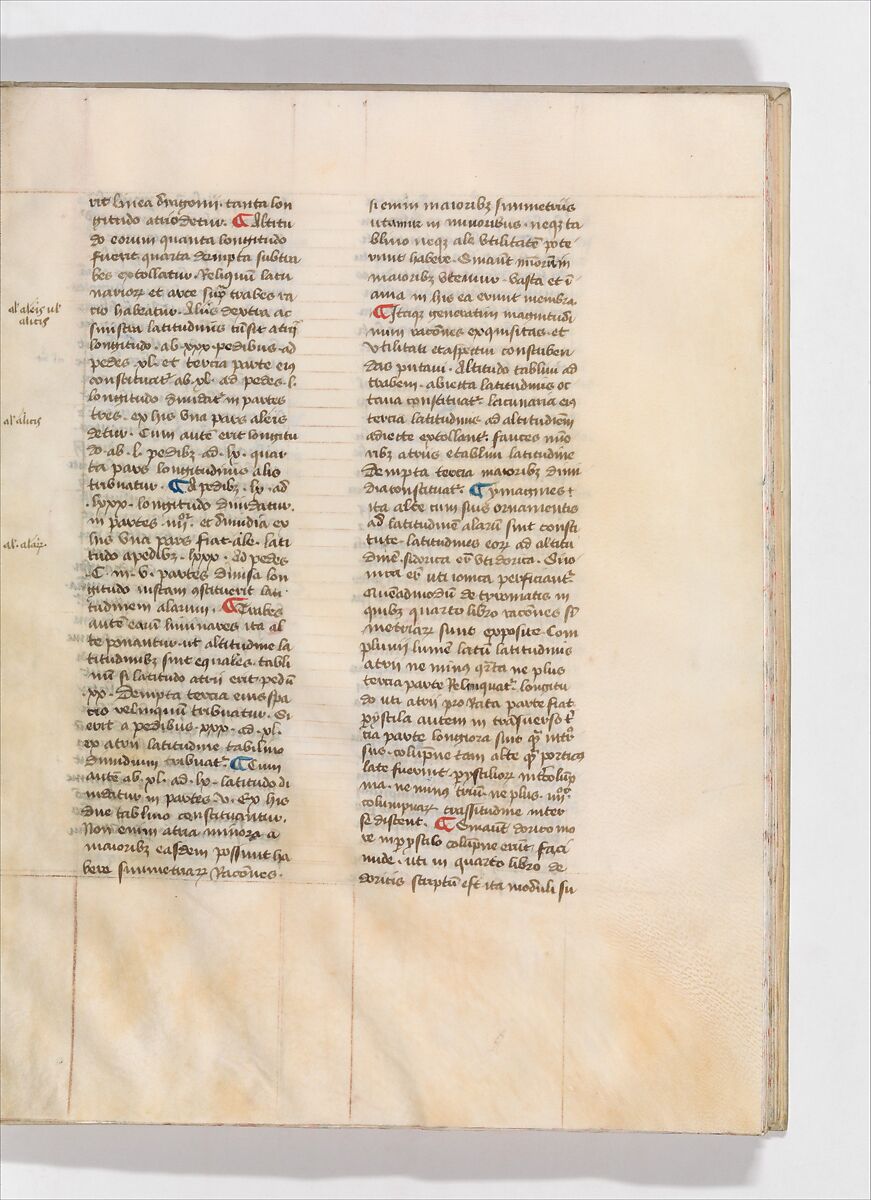 rit linea dragonii · tanta lon
gitudo atrio detur · ¶ Altitu
do eorum quanta longitudo
fuerit quarta dempta subtra
bes extollatur · Reliquum lacu
nariorum et arce supra trabes ra
cio habeatur · Aliis dextra ac
sinistra latitudinis cum sit atrii
longitudo · ab · xxx · pedibus · ad
pedes xl · et tercia parte eius
constituatur ab · xl · ad pedes · l ·
longitudo diuidatur in partes
tres · ex his vna pars aleis
detur · Cum autem erit longitu
do · ab · l · pedibus · ad · lx · quar
ta pars longitudinis aliis
tribuatur · ¶ A pedibus · lx · ad
· lxxx · longitudo diuidatur ·
in partes · iiii · et dimidia ex
his vna pars fiat ale · lati
tudo a pedibus · lxxx · ad pedes
· C · in · v · partes diuisa lon
gitudo iustam constituerit lati
tudinem alarum · ¶ Trabes
autem earum liminares ita al
te ponantur ut altitudine la
titudinibus sint equales · tabli
num si latitudo atrii erit pedum
· xx · Dempta tercia eius spa
cio relinquum tribuatur · Si
erit a pedibus · xxx · ad · xl ·
ex atrii latitudine tablino
dimidium tribuatur · ¶ Cum
autem ab · xl · ad · lx · latitudo di
uidatur in partes v · Ex his
due tablino constituantur ·
Non enim atria minora a
maioribus easdem possunt ha
bere simmetriarum raciones ·
si enim maioribus simmetriis
utamur in minoribus · neque ta
blino neque ale vtilitatem pote
runt habere · Sin autem minorum in
maioribus vtemur · vasta et i
ania in his ea erunt membra
¶ Itaque generatim magnitudi
num raciones exquisitas · et
vtilitati et aspectui conscriben
das putaui · Altitudo tablini ad
trabem · abiecta latitudinis oc
taua constituatur · lacunaria eius
tercia latitudinis ad altitudinem
adiecte extollantur · fauces mino
ribus atriis e tablini latitudine
Dempta tercia maioribus dimi
dia constituatur · ¶ ymagines
ita alte cum suis ornamentis
ad latitudinem alarum sint consti
tute · latitudines eorum ad altitu
dinem · si dorica erunt vti dorica · Si io
nica erunt uti ionica perficiantur
Quemadmodum de tyromatis in
quibus quarto libro raciones sim
metriarum sunt exposite Com
pluuii lumen latum latitudinis
atrii ne minus quarta ne plus
tercia parte Relinquatur · longitu
do uti atrii pro rata parte fiat
perystila autem in transuerso ter
cia parte longiora sint quam intror
sus · columpne tam alte quam porticus
late fuerint · perystiliorum intercolump
nia · ne minus trium · ne plus · iiii ·
columpnarum crassitudine inter
se distent · ¶ Sin autem dorico mo
re in perystilo columpne erunt faci
unde · uti in quarto libro de
doricis scriptum est ita moduli su
al' aleis uel
alicis
al' alicis
al · alarum